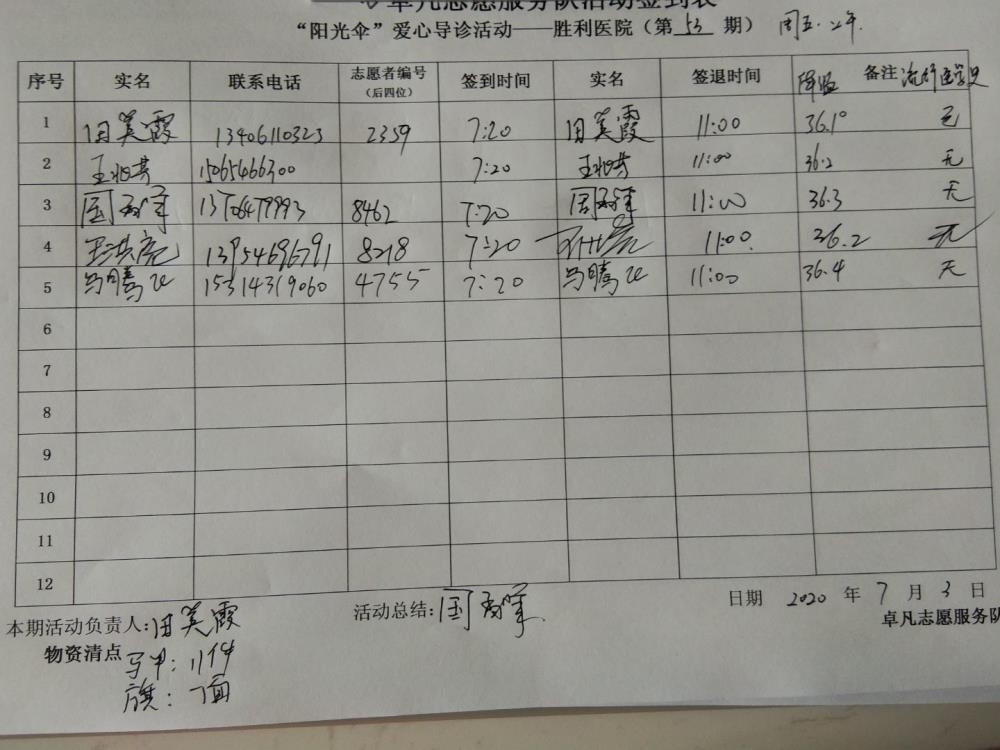 卓凡志愿服务队活动签到表
“阳光伞”爱心导诊活动——胜利医院（第 53 期） 周五.上午.
序号 实名 联系电话 志愿者编号（后四位） 签到时间 实名 签退时间 体温 备注 流行医学史
1 田美霞 13406110323 2359 7:20 田美霞 11:00 36.1° 无
2 15065466300 7:20 11:00 36.2 无
3 8462 7:20 11:00 36.3 无
4 13954696791 8218 7:20 11:00. 36.2 无
5 马腾飞 15314319060 4755 7:20 马腾飞 11:00 36.4 无
6
7
8
9
10
11
12
日期 2020 年 7 月 3 日
本期活动负责人:田美霞 活动总结:
卓凡志愿服务队
物资清点 马甲：11件
旗：1面